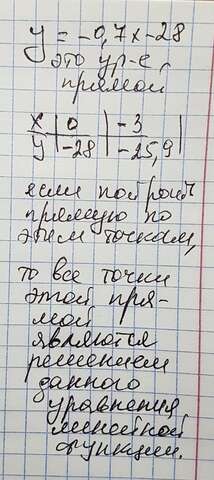 y = -0,7x-28
это ур-е
прямой
x | 0 | -3 |
y | -28 | -25,9 |
если построить
прямую по
этим точкам,
то все точки
этой пря-
мой
являются
решением
данного
уравнения
линейной
функции.